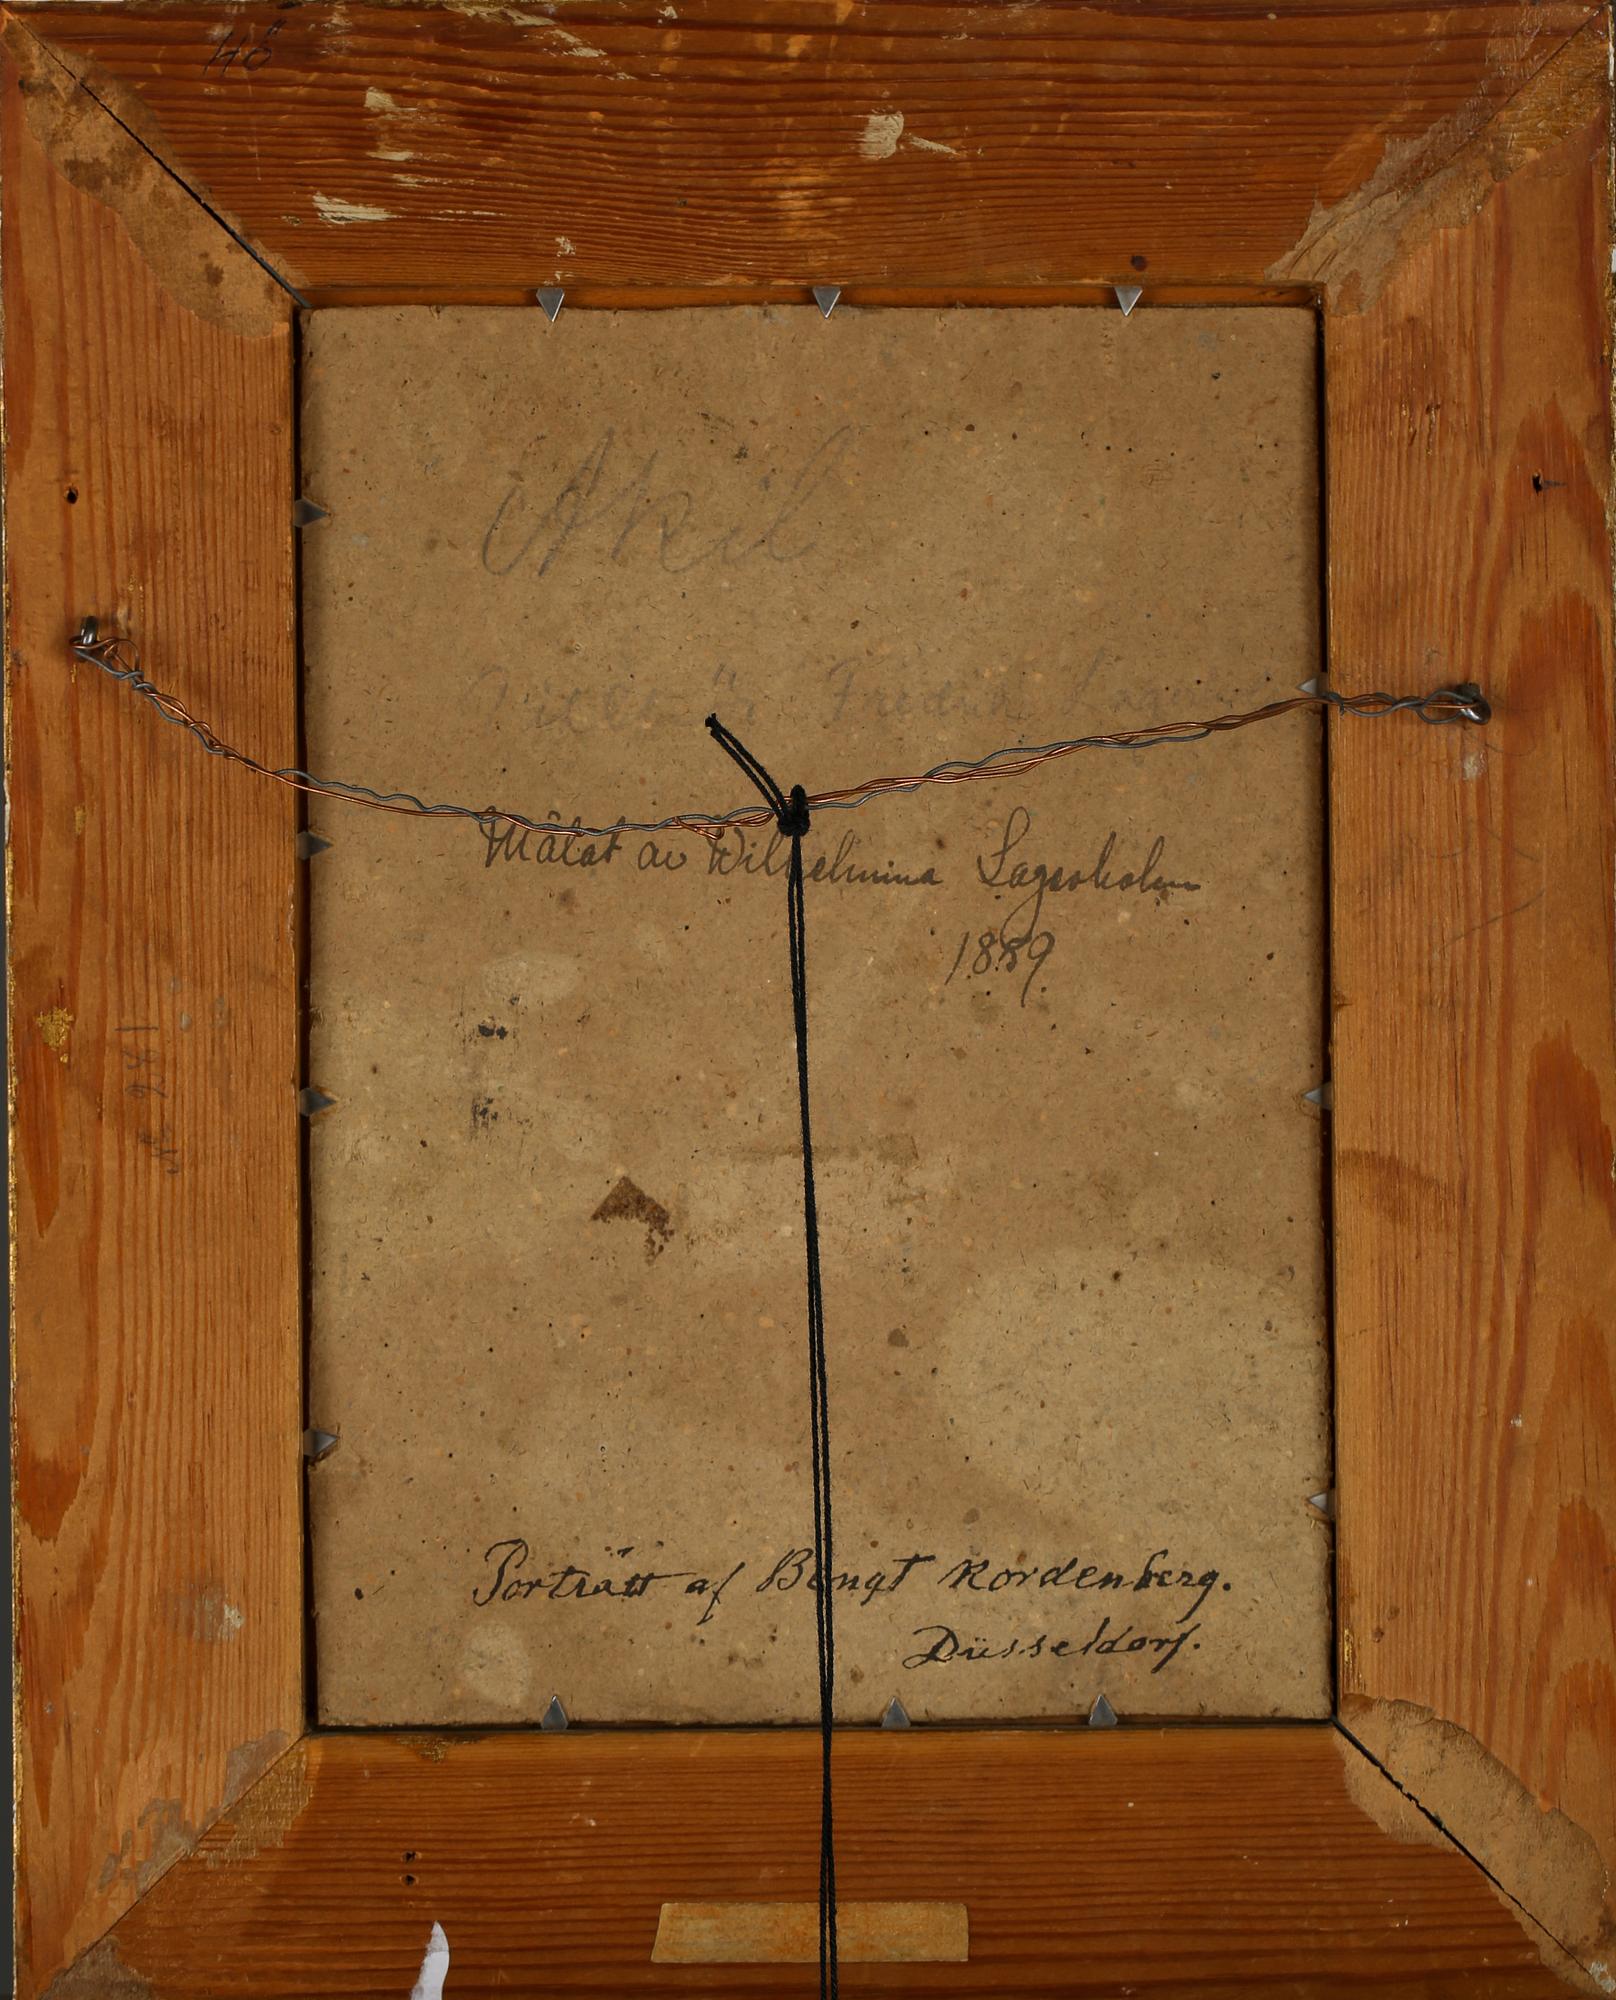 48
Akil
Tillhör Fredrik
Målat av Wilhelmina Lagerholm
1889.
Porträtt af Bengt Nordenberg.
Düsseldorf.